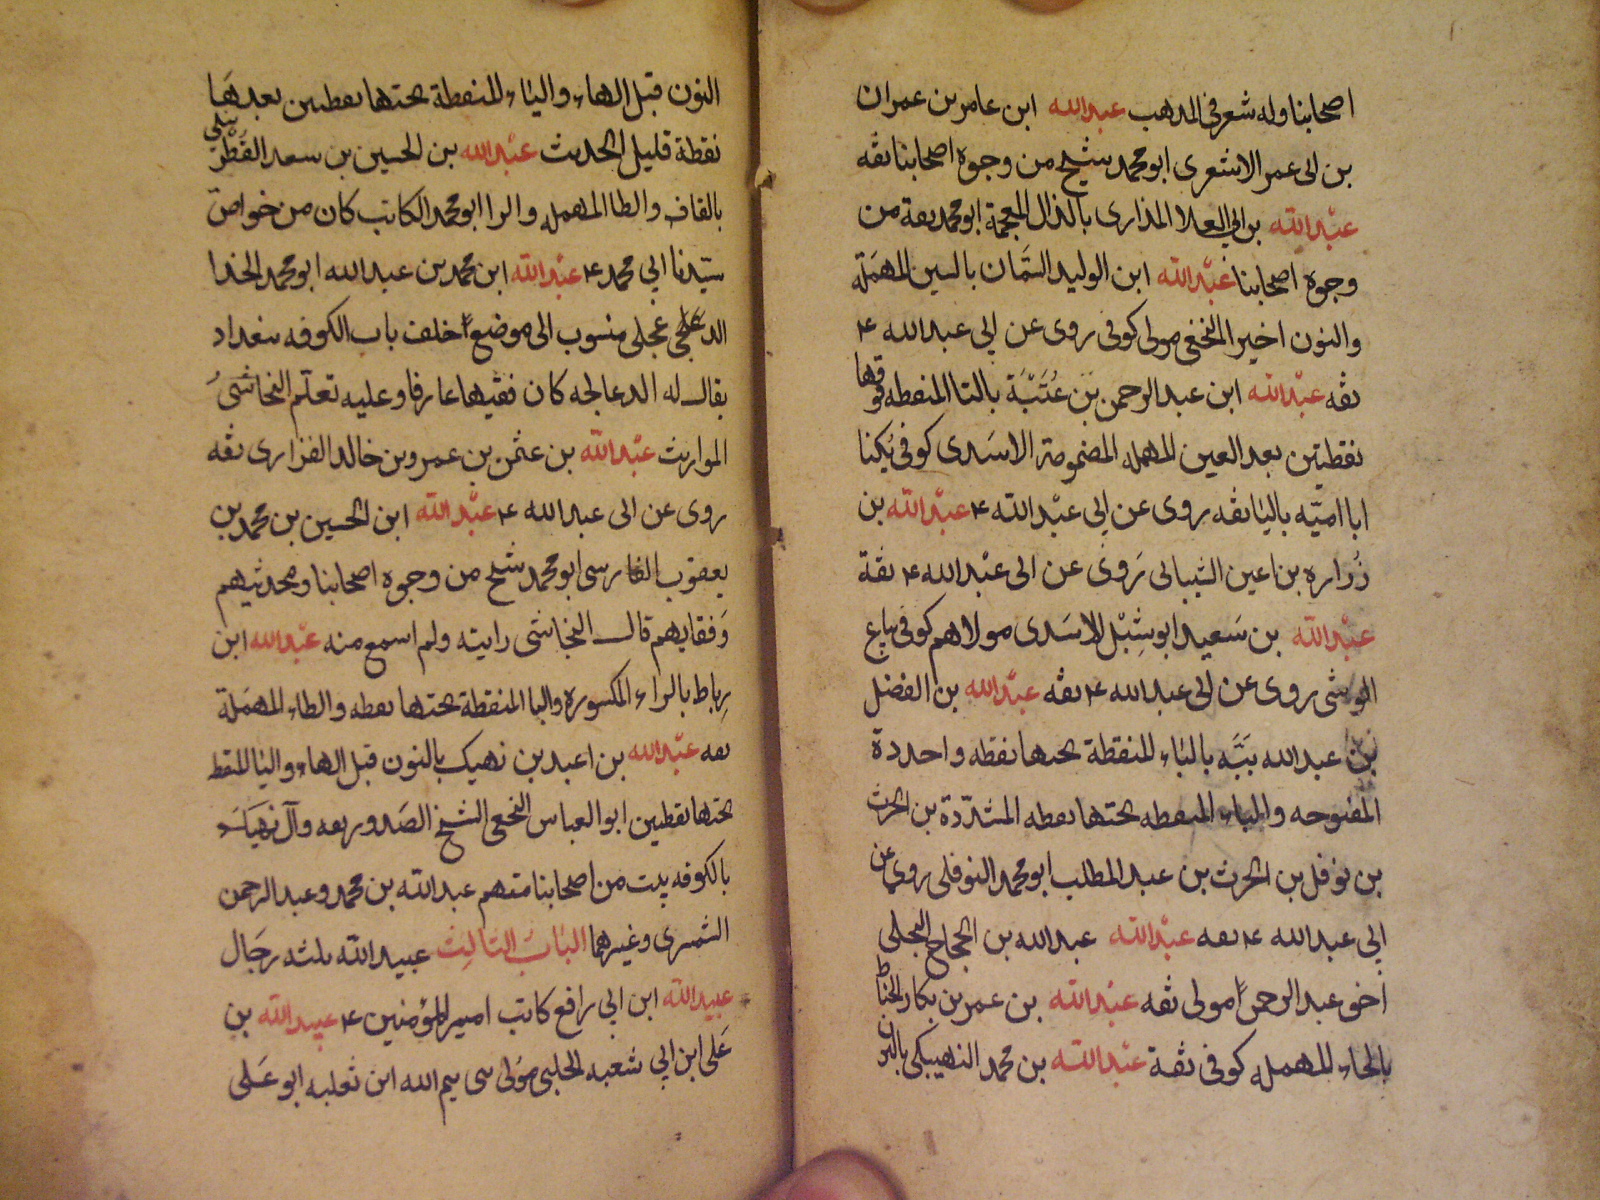 اصحابنا وله شعر في المدهب عبدالله ابن عامر بن عمران
بن ابى عمر الاشعرى ابو محمد شيخ من وجوه اصحابنا ثقه
عبدالله بن ابي العلا المذارى بالذال المعجمة ابو محمد ثقة من
وجوه اصحابنا عبدالله ابن الوليد السمان بالسين المهملة
والنون اخير النخعى مولى كوفى روى عن ابي عبدالله ع
ثقه عبدالله ابن عبد الرحمن بن عُتَيْبَة بالتا المنقطه فوقها
نقطتين بعد العين المهمله المضمومة الاسدى كوفى يكنا
ابا اميّه باليا ثقه روى عن ابي عبدالله ع عبدالله بن
زُراره بن اعين الشيبانى رَوى عن ابى عبدالله ع ثقة
عبدالله بن سَعيد ابو شِبْل الاسَدى مولاهم كوفى بياع
الوشى روى عن ابى عبدالله ع ثقه عبدالله بن الفضل
بن عبدالله بَبَّه بالباء المنقطة تحتها نقطه واحدة
المفتوحه والباء المنقطه تحتها نقطه المشدّدة بن الحرث
بن نوفل بن الحرث بن عبد المطلب ابو محمد النوفلى روى عن
ابي عبدالله ع ثقه عبدالله عبدالله بن الحجاج البجلى
اخو عبد الرحمن مولى ثقه عبدالله بن عمر بن بكار الحناط
بالحاء المهمله كوفى ثقة عبدالله بن محمد النهيكى بالنون
النون قبل الهاء والياء المنقطة تحتها نقطتين بعدهَا
نقطة قليل الحديث عبدالله بن الحسين بن سعد القطربلى
بالقاف والطا المهمله والرا ابو محمد الكاتب كان من خواص
سيّدنا ابي محمد ع عبدالله ابن محمد بن عبدالله ابو محمد الحذا
الدعلجى عجلى منسوب الى موضع خلف باب الكوفه ببغداد
يقال له الدعالجه كان فقيها عارفا وعليه تعلّم النجاشىُ
المواريث عبدالله بن عثمن بن عمرو بن خالد الفزارى ثقه
روى عن ابى عبدالله ع عبدالله ابن الحسين بن محمد بن
يعقوب الفارسى ابو محمد شيخ من وجوه اصحابنا ومحدثيهم
وَفقهايهم قال النجاشى رايته ولم اسمع منه عبدالله ابن
رِباط بالراء المكسوره والبا المنقطة تحتها نقطه والطاء المهملة
ثقه عبدالله بن اعبد بن نهيك بالنون قبل الهاء واليا المنقط
تحتها نقطتين ابو العباس النخعى الشيخ الصَدوق ثقه وآل نهيك
بالكوفه بيت من اصحابنا منهم عبدالله بن محمد وعبد الرحمن
السمرى وغيرهما البابُ الثالث عبيدالله ثلثه رجَال
عبيدالله ابن ابي رافع كاتب امير المؤمنين ع عبيدالله بن
عَلى ابن ابي شعبه الحلبى مَولى بنى تيم الله ابن ثعلبه ابو عَلى